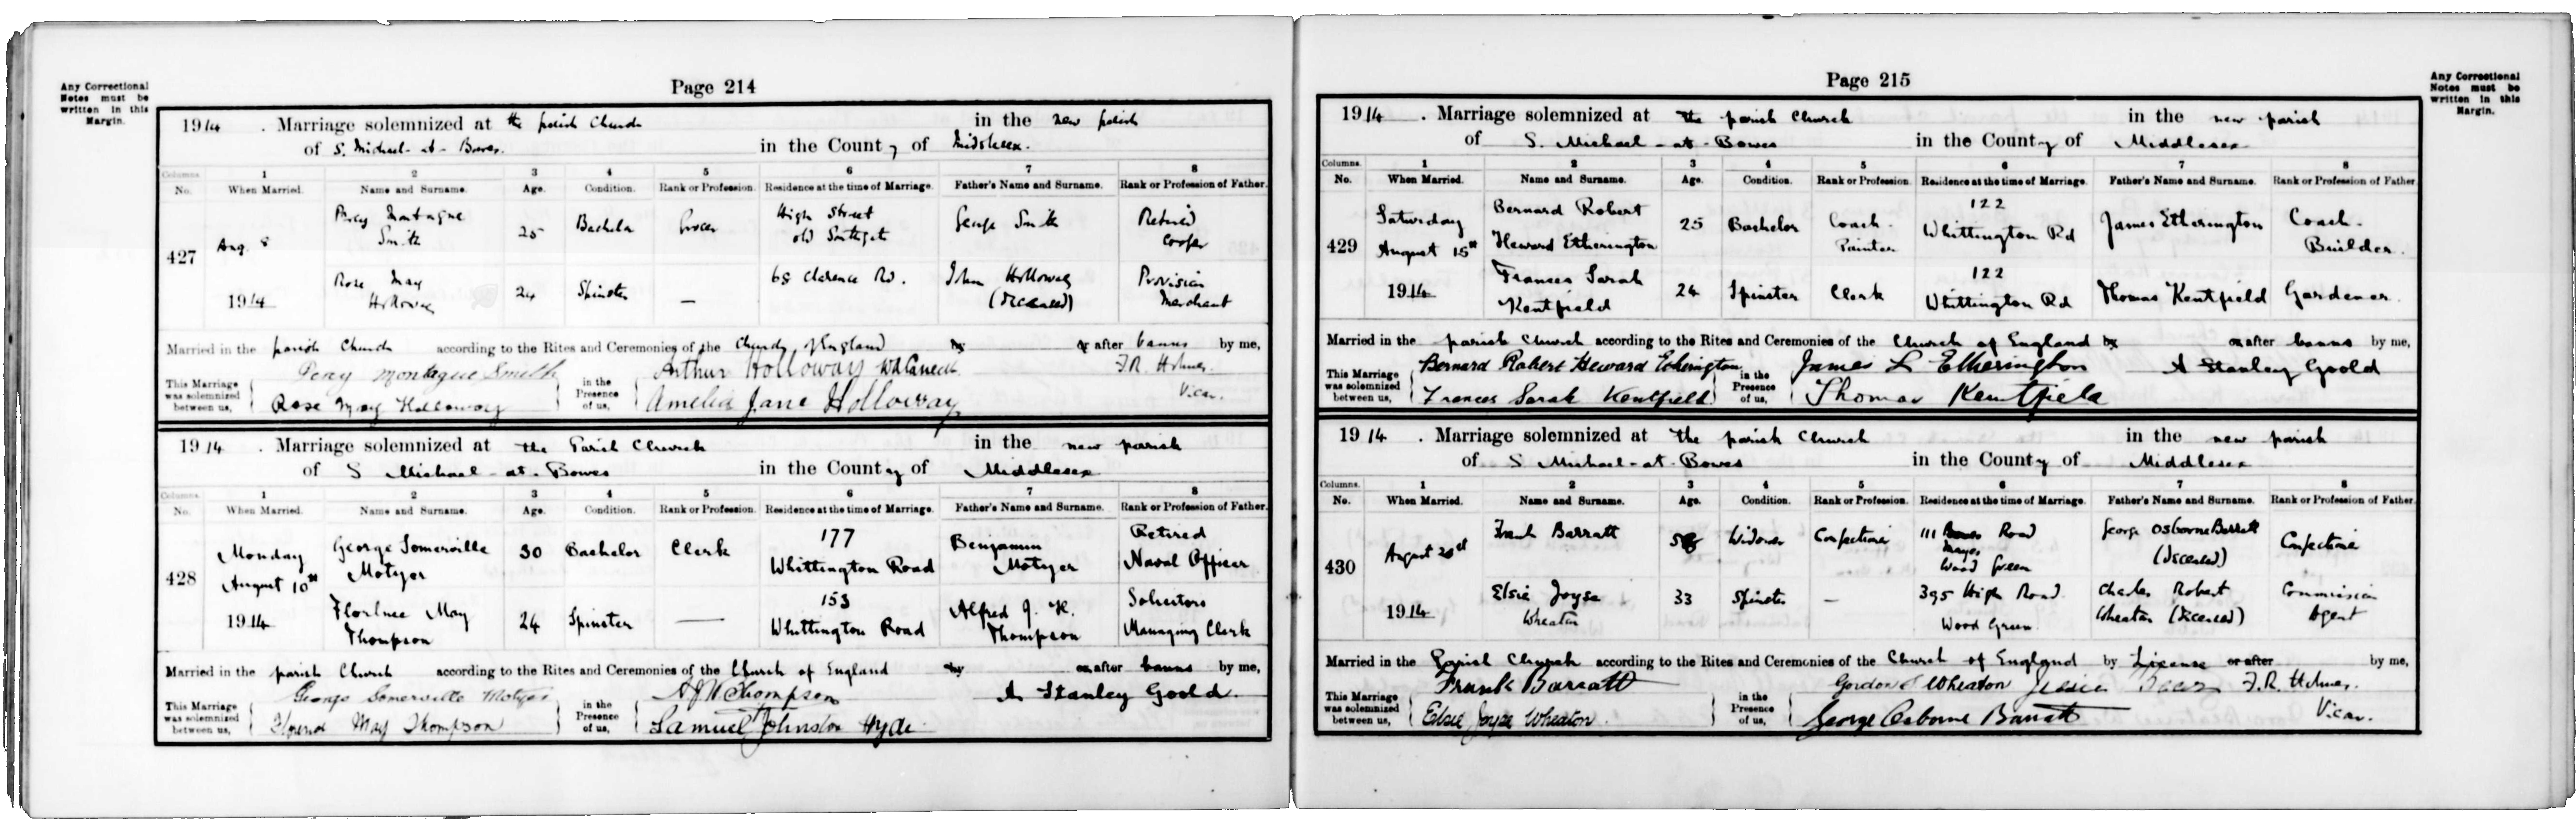 Page 214
Any Correctional
Notes must be
written in this
Margin.
1914 . Marriage solemnized at the parish Church in the new parish
of S. Michael-at-Bowes. in the County of Middlesex.
Columns. 1 2 3 4 5 6 7 8
No. When Married. Name and Surname. Age. Condition. Rank or Profession. Residence at the time of Marriage. Father's Name and Surname. Rank or Profession of Father.
427 Aug. 8 1914
Percy Montague Smith 25 Bachelor Grocer High Street Old Southgate George Smith Retired Cooper
Rose May Holloway 24 Spinster — 68 Clarence Rd. John Holloway (Deceased) Provision Merchant
Married in the parish Church according to the Rites and Ceremonies of the Church of England by or after banns by me,
This Marriage was solemnized between us, Percy Montague Smith in the Presence of us, Arthur Holloway F.R. Holmes
Rose May Holloway Amelia Jane Holloway Vicar.
1914 . Marriage solemnized at the Parish Church in the new parish
of S Michael-at-Bowes in the County of Middlesex
Columns. 1 2 3 4 5 6 7 8
No. When Married. Name and Surname. Age. Condition. Rank or Profession. Residence at the time of Marriage. Father's Name and Surname. Rank or Profession of Father.
428 Monday August 10th 1914
George Somerville Motyer 30 Bachelor Clerk 177 Whittington Road Benjamin Motyer Retired Naval Officer
Florence May Thompson 24 Spinster — 153 Whittington Road Alfred J. H. Thompson Solicitors Managing Clerk
Married in the parish Church according to the Rites and Ceremonies of the Church of England by or after banns by me,
This Marriage was solemnized between us, George Somerville Motyer in the Presence of us, A J H Thompson A Stanley Goold
Florence May Thompson Samuel Johnston Hyde
Page 215
Any Correctional
Notes must be
written in this
Margin.
1914 . Marriage solemnized at the parish Church in the new parish
of S. Michael-at-Bowes in the County of Middlesex
Columns. 1 2 3 4 5 6 7 8
No. When Married. Name and Surname. Age. Condition. Rank or Profession. Residence at the time of Marriage. Father's Name and Surname. Rank or Profession of Father.
429 Saturday August 15th 1914
Bernard Robert Heward Etherington 25 Bachelor Coach-Painter 122 Whittington Rd James Etherington Coach-Builder.
Frances Sarah Kentfield 24 Spinster Clerk 122 Whittington Rd Thomas Kentfield Gardener
Married in the parish Church according to the Rites and Ceremonies of the Church of England by or after banns by me,
This Marriage was solemnized between us, Bernard Robert Heward Etherington in the Presence of us, James L Etherington A Stanley Goold
Frances Sarah Kentfield Thomas Kentfield
1914 . Marriage solemnized at the parish Church in the new parish
of S Michael-at-Bowes in the County of Middlesex
Columns. 1 2 3 4 5 6 7 8
No. When Married. Name and Surname. Age. Condition. Rank or Profession. Residence at the time of Marriage. Father's Name and Surname. Rank or Profession of Father.
430 1914
Frank Barratt Widower Confectioner 111 Bowes Mayes Road Wood Green George Osborne Barratt (Deceased) Confectioner
Elsie Joyce Wheaton 33 Spinster — 395 High Road Wood Green Charles Robert Wheaton (Deceased) Commission Agent
Married in the Parish Church according to the Rites and Ceremonies of the Church of England by License or after by me,
This Marriage was solemnized between us, Frank Barratt in the Presence of us, Gordon Wheaton F.R. Holmes.
Elsie Joyce Wheaton George Osborne Barratt Vicar.